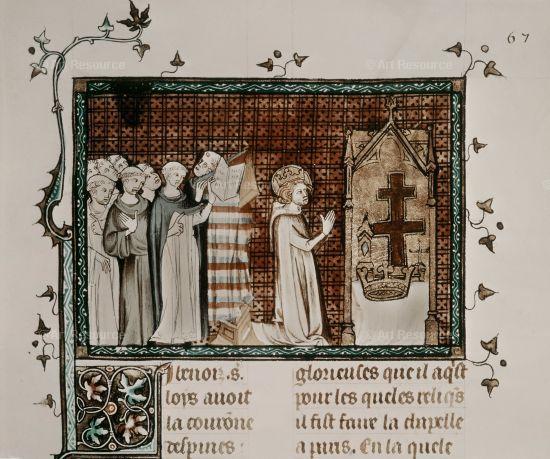 © Art Resource
© Art Resource
67
i benoiz .s.
loys avoit
la couro̅ne
despines :
glorieuses que il aq̃st
pour les queles reliq̃s
il fist faire la chapelle
a paris. En la quele